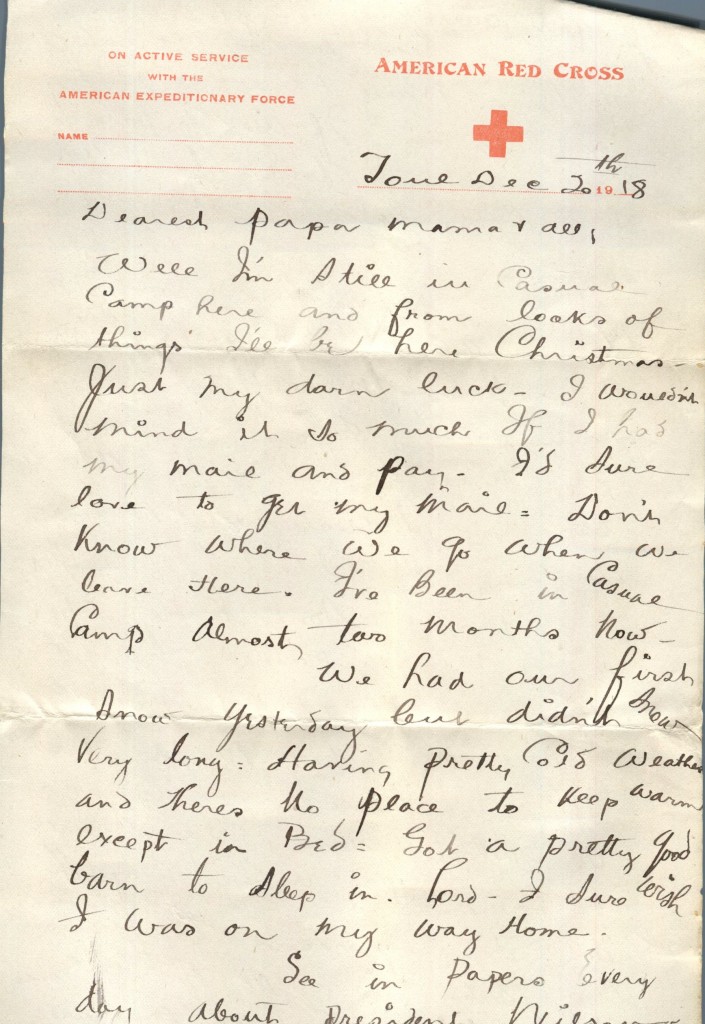 ON ACTIVE SERVICE
WITH THE
AMERICAN EXPEDITIONARY FORCE
NAME
AMERICAN RED CROSS
Toul Dec 20th 1918
Dearest papa mama & all,
Well I'm Still in Casual
Camp here and from looks of
things I'll be here Christmas -
Just my darn luck - I wouldn't
mind it so much If I had
my mail and pay - I'd sure
love to get my mail = Don't
Know where we go when we
leave Here. I've Been in Casual
Camp Almost two months Now -
We had our first
Snow Yesterday but didn't Snow
Very long = Having pretty Cold Weather
and theres No place to Keep warm
except in Bed = Got a pretty good
barn to sleep in. Lord - I Sure wish
I was on my way Home.
See in Papers Every
day about President Wilson